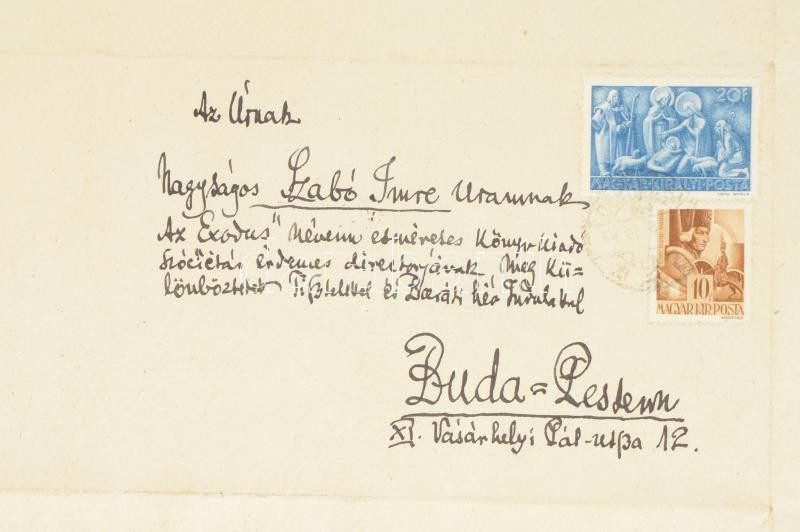 Az Úrnak
Nagyságos Szabó Imre Uramnak
Az Exodus" névenn ésméretes Könyv Kiadó
Szóciétás érdemes directorjának Meg Kü-
lönböztetett Tißtelettel és Baráti hév Indulattal
Buda=Pestenn
XI. Vásárhelyi Pál-utßa 12.
20F
MAGYAR KIRÁLYI POSTA
10
MAGYAR KIR. POSTA